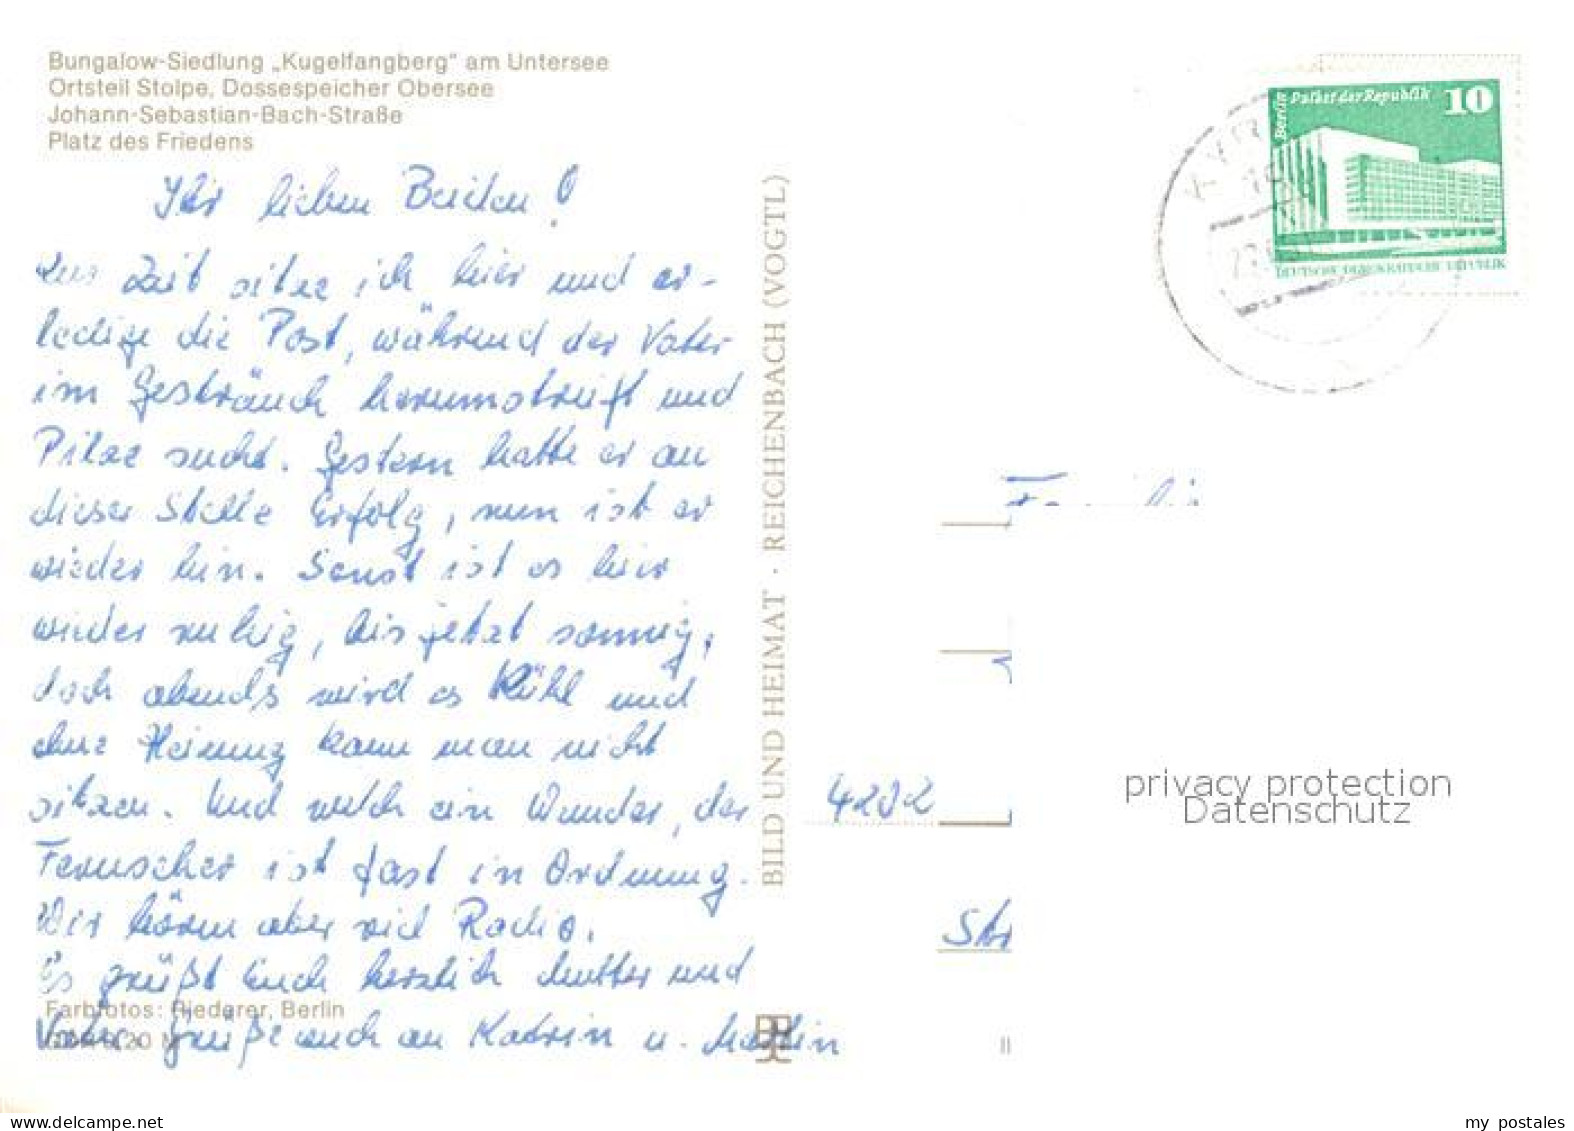 Bungalow-Siedlung „Kugelfangberg“ am Untersee
Ortsteil Stolpe, Dossespeicher Obersee
Johann-Sebastian-Bach-Straße
Platz des Friedens
Berlin Palast der Republik 10
DEUTSCHE DEMOKRATISCHE REPUBLIK
KYR
Ihr lieben Beiden!
Zur Zeit sitze ich hier und er-
ledige die Post, während der Vater
im Gesträuch herumstreift und
Pilze sucht. Gestern hatte er an
dieser Stelle Erfolg, nun ist er
wieder hin. Sonst ist es hier
wieder ruhig, bis jetzt sonnig,
doch abends wird es kühl und
ohne Heizung kann man nicht
sitzen. Und welch ein Wunder, der
Fernseher ist fast in Ordnung.
Wir hören aber viel Radio.
Es grüßt Euch herzlich Mutter und
Vater. Grüße auch an Katrin u. Martin
Farbfotos: Riederer, Berlin
BILD UND HEIMAT · REICHENBACH (VOGTL)
Familie
4202
Str
privacy protection
Datenschutz
www.delcampe.net
my_postales